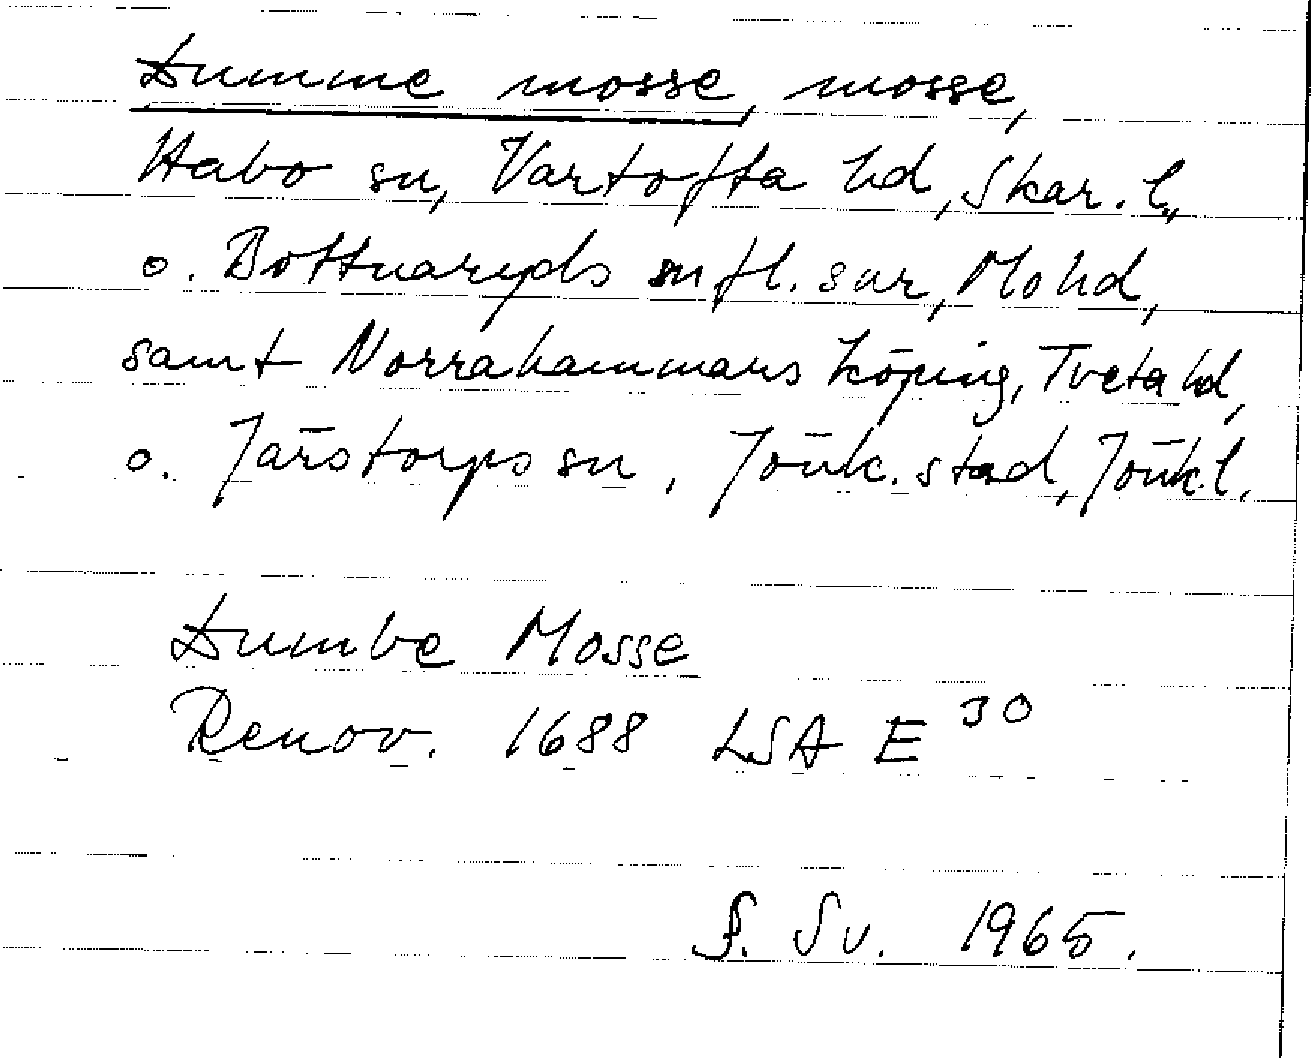 Dumme mosse, mosse,
Habo sn, Vartofta hd, Skar. l.,
o. Bottnaryds m fl. snr, Mo hd,
samt Norrahammars köping, Tveta hd,
o. Järstorps sn, Jönk. stad, Jönk. l.
Dumbe Mosse
Renov. 1688 LSA E 30
S. Sv. 1965.